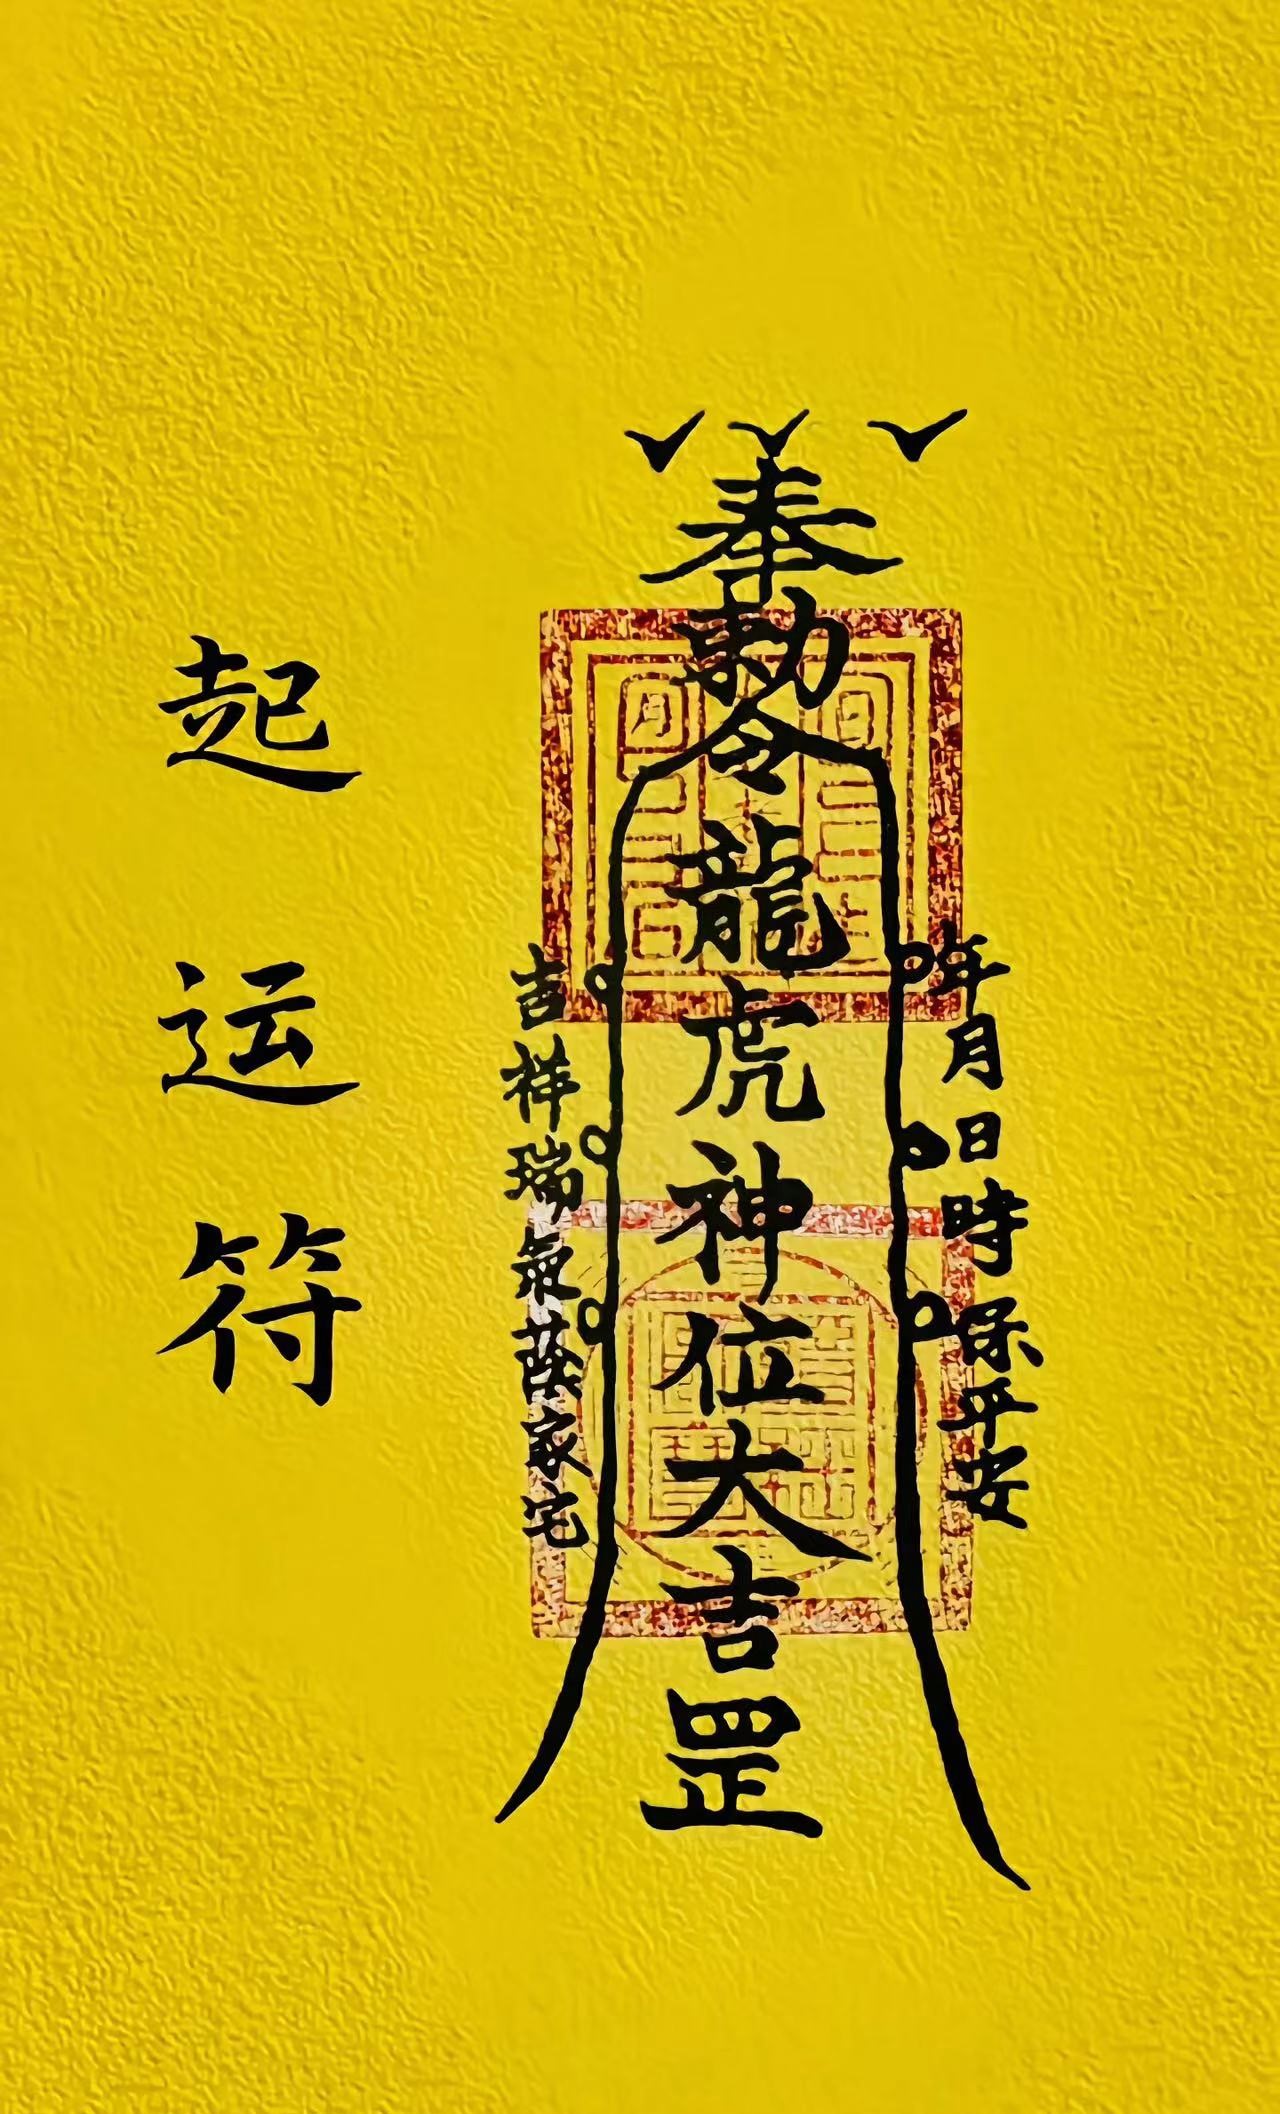 奉勅令龍虎神位大吉罡
年月日時保平安
吉祥瑞氣蔭家宅
起运符